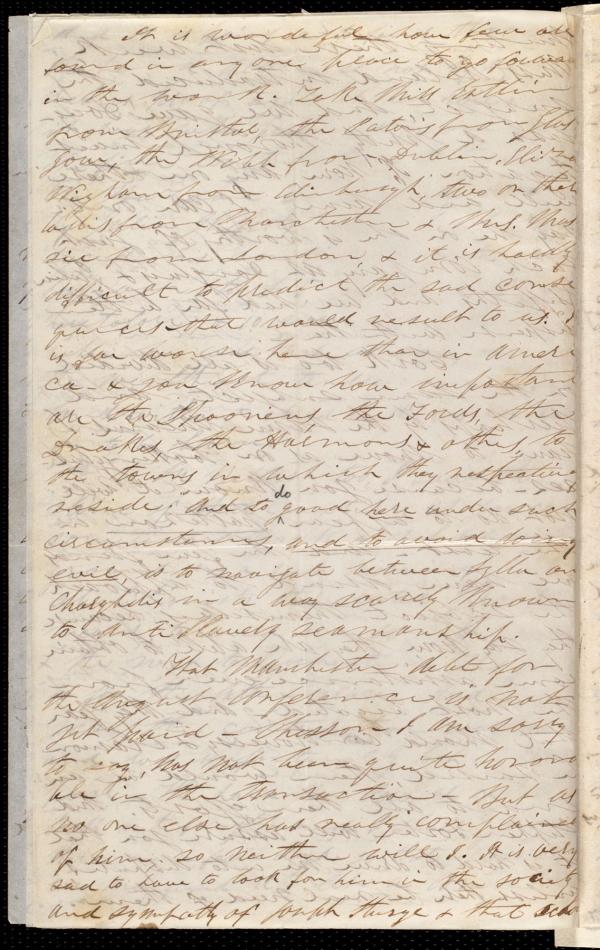 It is wonderful how few are
found in any one place to go forward
in the work. Take Miss Estlin
from Bristol, the Patons from Glas
gow, the Webbs from Dublin, Eliza
Wigham from Edinburgh, two or three
from Manchester & Mrs. Mas
sie from London, & it is hardly
difficult to predict the sad conse
quences that would result to us. It
is far worse here than in Ameri
ca - & you know how important
are the Spooners the Fords, the
Drakes, the Harmons & others, to
the towns in which they respectively
reside. And to do good here under such
circumstances, and to avoid doing
evil, is to navigate between Scylla and
Charybdis in a way scarcely known
to Anti Slavery seamanship.
That Manchester debt for
the August Conference is not
yet paid - Chesson I am sorry
to say, has not been quite honora
ble in the transaction - But as
no one else has really complained
of him so neither will I. It is very
sad to have to look for him in the society
and sympathy of Joseph Sturge & that